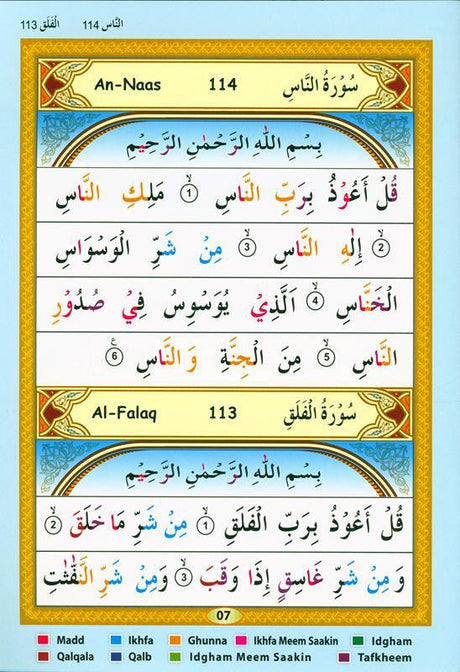 النَّاس 114    الْفَلَق 113
An-Naas 114 سُوْرَةُ النَّاسِ
بِسْمِ اللّٰهِ الرَّحْمٰنِ الرَّحِيْمِ
قُلْ اَعُوْذُ بِرَبِّ النَّاسِ ۙ﴿1﴾ مَلِكِ النَّاسِ
ۙ﴿2﴾ اِلٰهِ النَّاسِ ۙ﴿3﴾ مِنْ شَرِّ الْوَسْوَاسِ
الْخَنَّاسِ ۙ﴿4﴾ الَّذِيْ يُوَسْوِسُ فِيْ صُدُوْرِ
النَّاسِ ۙ﴿5﴾ مِنَ الْجِنَّةِ وَ النَّاسِ ﴿6﴾
Al-Falaq 113 سُوْرَةُ الْفَلَقِ
بِسْمِ اللّٰهِ الرَّحْمٰنِ الرَّحِيْمِ
قُلْ اَعُوْذُ بِرَبِّ الْفَلَقِ ۙ﴿1﴾ مِنْ شَرِّ مَا خَلَقَ ۙ﴿2﴾
وَ مِنْ شَرِّ غَاسِقٍ اِذَا وَقَبَ ۙ﴿3﴾ وَمِنْ شَرِّ النَّفّٰثٰتِ
07
Madd Ikhfa Ghunna Ikhfa Meem Saakin Idgham
Qalqala Qalb Idgham Meem Saakin Tafkheem